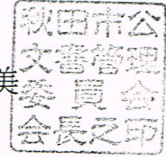 美
秋田市公
文書管理
委員会
会長之印